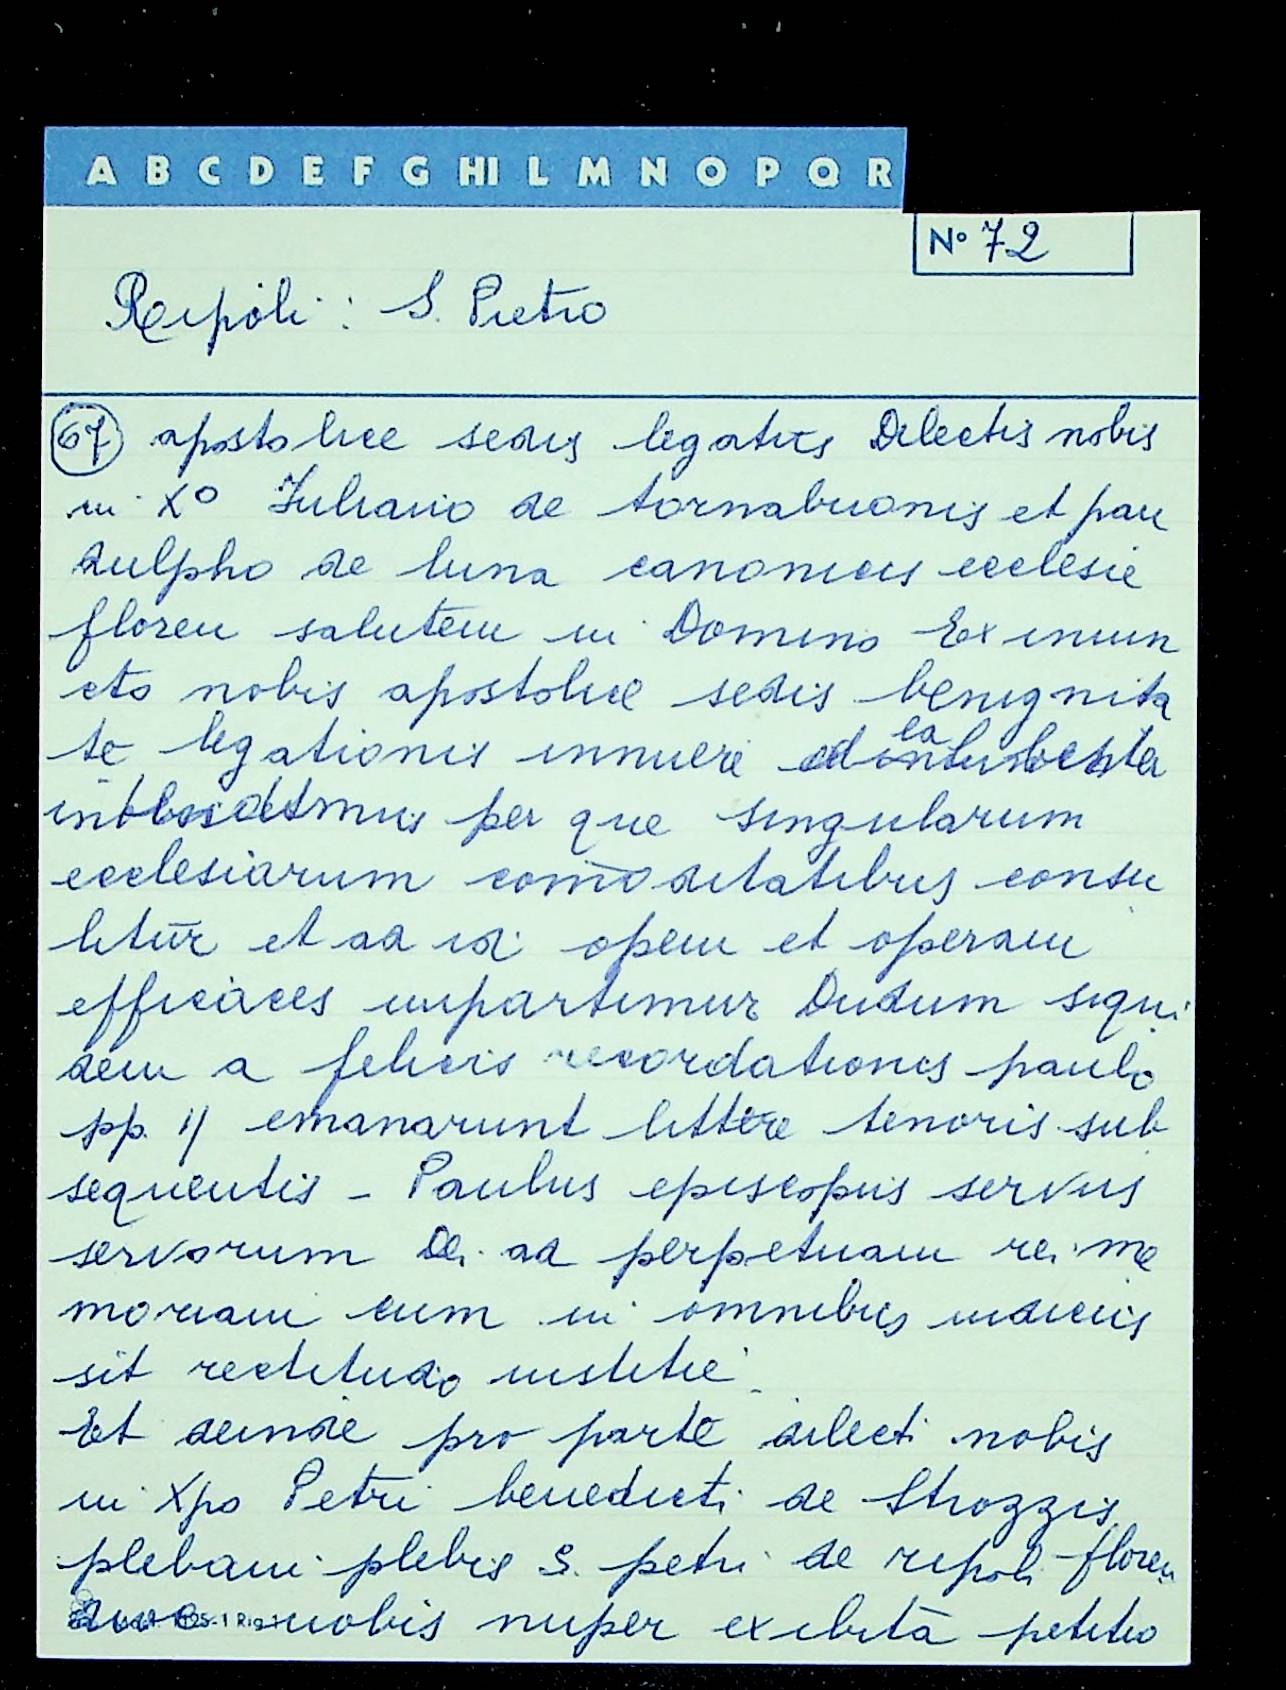 A B C D E F G HI L M N O P Q R
Nº 72
Ripoli: S. Pietro
67 apostolice sedis legatus Dilectis nobis
in Xº Juliano de tornabuonis et pan
dulpho de luna canonicis ecclesie
floren salutem in Domino Ex iniun
cto nobis apostolice sedis benignita
te legationis munere
per que singularum
ecclesiarum comōditatibus consu
litur et ad id opem et operam
efficaces impartimur Dudum siqui
dem a felicis recordationes paulo
pp. ij emanarunt littere tenoris sub
sequentis - Paulus episcopus servus
servorum Dei ad perpetuam rei me
moriam cum in omnibus iudiciis
sit rectitudo iustitie
Et deinde pro parte dilecti nobis
in Xpo Petri benedicti de Strozzis
plebani plebis S. petri de ripoli floren
nobis nuper exibita petitio